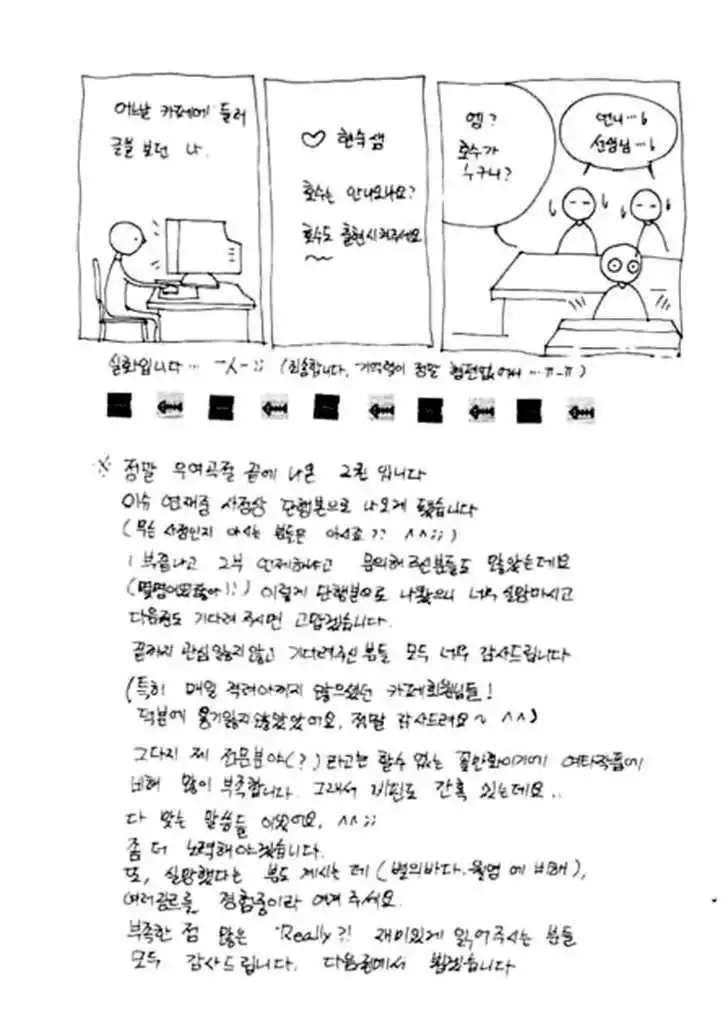 어느날 카페에 들러
글을 보던 나.
♡ 현수샘
호수는 안나오나요?
호수도 출현시켜주세요
~~
엥?
호수가
누구니?
언니…
선생님…
실화입니다… ㅡㅅ-;; (죄송합니다. 기억력이 정말 형편없어서…ㅠ-ㅠ)
※ 정말 우여곡절 끝에 나온 2권 입니다
이슈 연재중 사정상 단행본으로 나오게 됐습니다
(무슨 사정인지 아시는 분들은 아시죠?? ^^;;)
1부끝나고 2부 언제하냐고 문의해주신분들도 많았는데요
(몇명이었잖아!!) 이렇게 단행본으로 나왔으니 너무 실망마시고
다음권도 기다려 주시면 고맙겠습니다.
끝까지 관심잃지않고 기다려주신 분들 모두 너무 감사드립니다
(특히 매일 격려아끼지 않으셨던 카페회원님들!
덕분에 용기잃지않았었어요, 정말 감사드려요~ ^^)
그다지 제 전문분야(?)라고는 할수 없는 순만화이기에 여타작품에
비해 많이 부족합니다. 그래서 비판도 간혹 있는데요..
다 맞는 말씀들 이었어요. ^^;;
좀 더 노력해야겠습니다.
또, 실망했다는 분도 계시는 데(별의바다.월명 에 비해),
여러장르를 경험중이라 여겨 주세요.
부족한 점 많은 'Really?! 재미있게 읽어주시는 분들
모두 감사드립니다. 다음권에서 뵙겠습니다